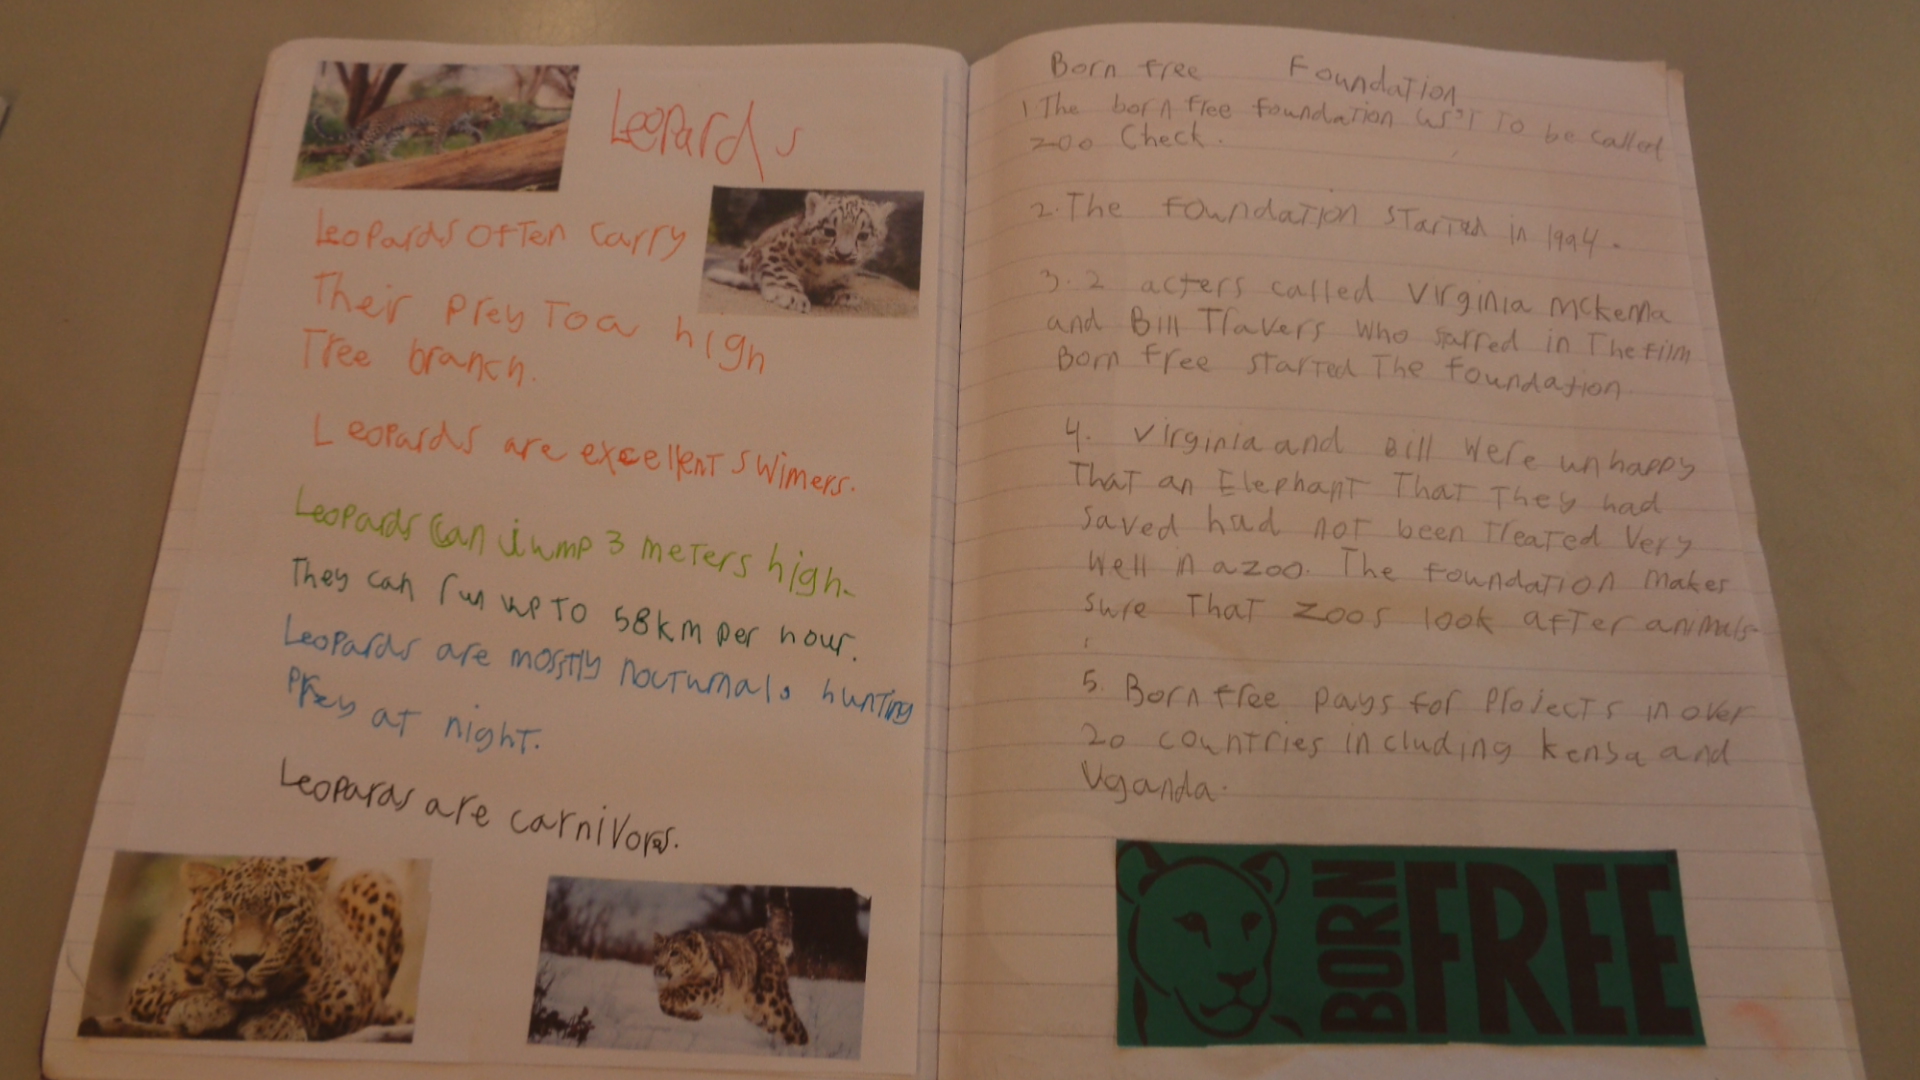 Leopards
Leopards often carry
Their prey To a high
Tree branch.
Leopards are excellent swimers.
Leopards can jump 3 meters high.
They can run up to 58km per hour.
Leopards are mostly nocturnal. hunting
prey at night.
Leopards are carnivors.
Born free Foundation
1 The born free foundation to be called
zoo Check.
2. The foundation started in 1994.
3. 2 acters called Virginia Mckenna
and Bill Travers who starred in The film
Born free started The foundation
4. Virginia and Bill were unhappy
That an Elephant That They had
saved had not been Treated very
well in a zoo. The foundation makes
sure That zoos look after animals
5. Born free pays for projects in over
20 countries including and
Uganda.
BORN FREE